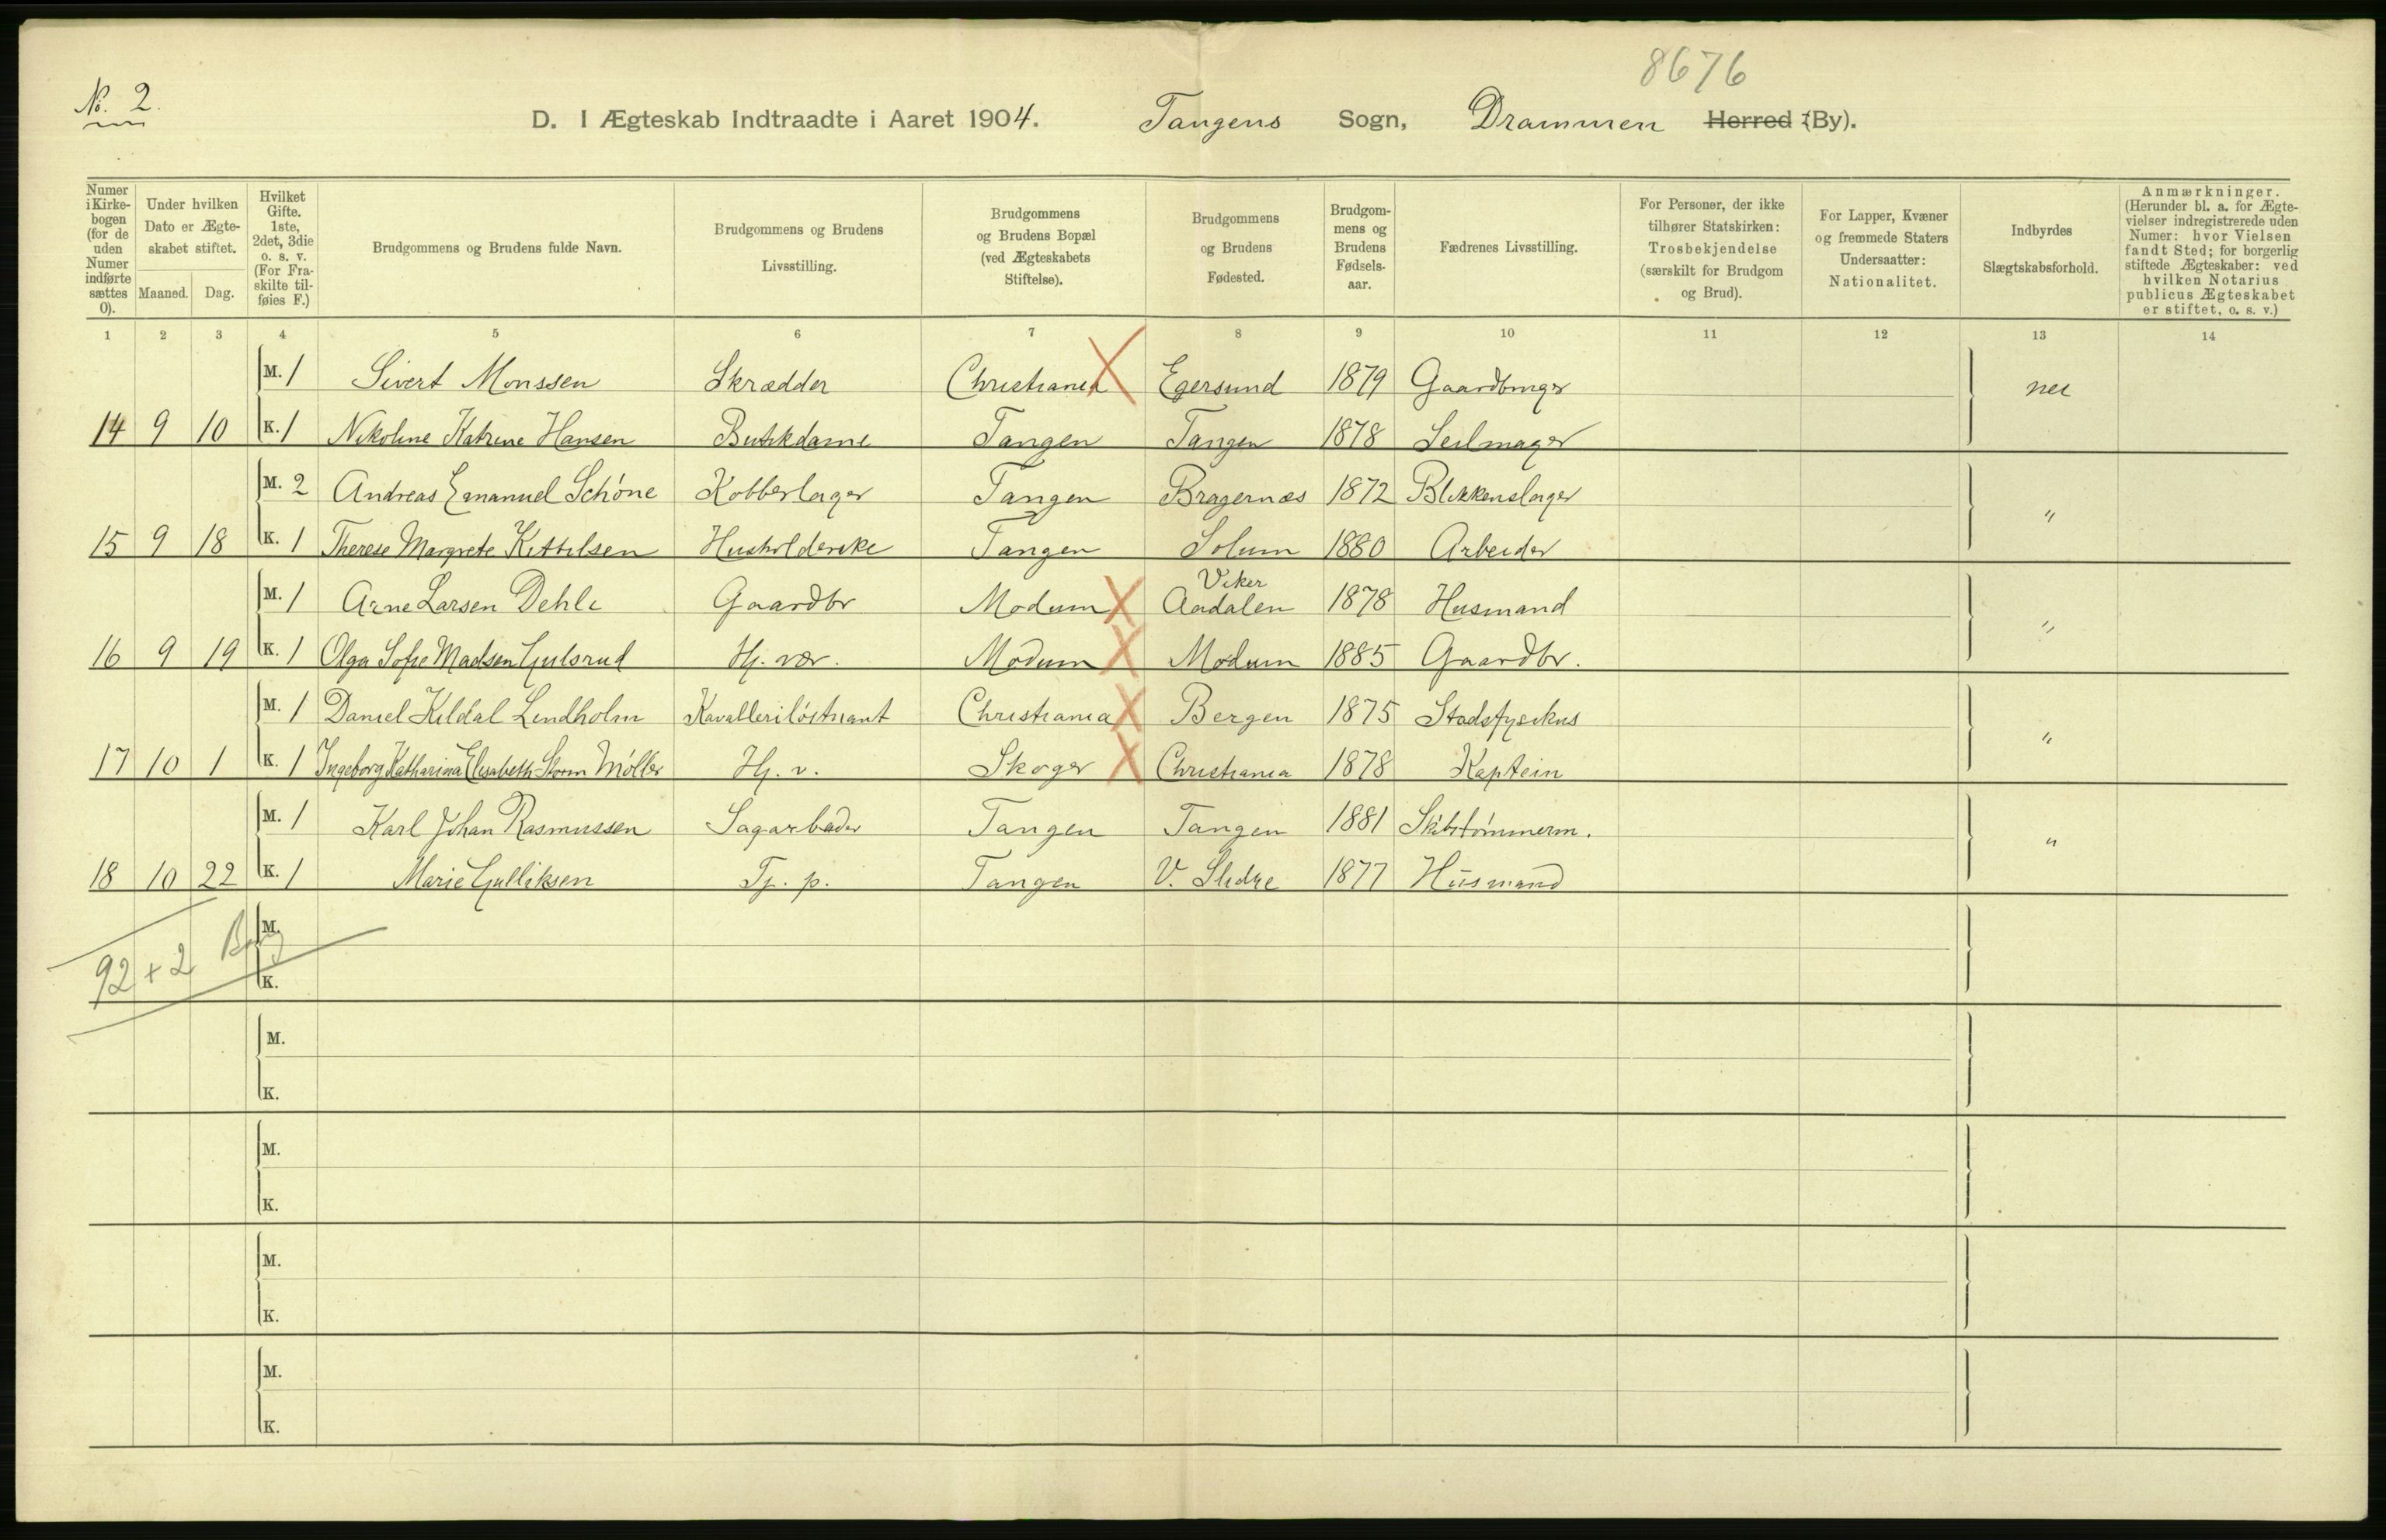 8676
No. 2.
D. I Ægteskab Indtraadte i Aaret 1904. Tangens Sogn, Drammen Herred (By).
Numer i Kirkebogen (for de uden Numer indførte sættes 0). Under hvilken Dato er Ægteskabet stiftet. Maaned. Dag. Hvilket Gifte. 1ste, 2det, 3die o. s. v. (For Fraskilte tilføies F.) Brudgommens og Brudens fulde Navn. Brudgommens og Brudens Livsstilling. Brudgommens og Brudens Bopæl (ved Ægteskabets Stiftelse). Brudgommens og Brudens Fødested. Brudgommens og Brudens Fødselsaar. Fædrenes Livsstilling. For Personer, der ikke tilhører Statskirken: Trosbekjendelse (særskilt for Brudgom og Brud). For Lapper, Kvæner og fremmede Staters Undersaatter: Nationalitet. Indbyrdes Slægtskabsforhold. Anmærkninger. (Herunder bl. a. for Ægtevielser indregistrerede uden Numer: hvor Vielsen fandt Sted; for borgerlig stiftede Ægteskaber: ved hvilken Notarius publicus Ægteskabet er stiftet, o. s. v.)
1 2 3 4 5 6 7 8 9 10 11 12 13 14
M. 1 Sivert Monssen Skrædder Christiania Egersund 1879 Gaardbruger nei
14 9 10 K. 1 Nikoline Katrine Hansen Butikdame Tangen Tangen 1878 Seilmager
M. 2 Andreas Emanuel Schöne Kobberslager Tangen Bragernæs 1872 Blikkenslager "
15 9 18 K. 1 Therese Margrete Kittilsen Husholderske Tangen Solum 1880 Arbeider
M. 1 Arne Larsen Dehle Gaardbr Modum Viker Aadalen 1878 Husmand "
16 9 19 K. 1 Olga Sofie Madsen Gulsrud Hj. vær. Modum Modum 1885 Gaardbr.
M. 1 Daniel Kildal Lindholm Kavalleriløitnant Christiania Bergen 1875 Stadsfysikus "
17 10 1 K. 1 Ingeborg Katharina Elisabeth Storm Möller Hj. v. Skoger Christiania 1878 Kaptein
M. 1 Karl Johan Rasmussen Sagarbeider Tangen Tangen 1881 Skibstömmerm. "
18 10 22 K. 1 Marie Gulliksen Tj. p. Tangen V. Slidre 1877 Husmand
92 + 2
M.
K.
M.
K.
M.
K.
M.
K.
M.
K.